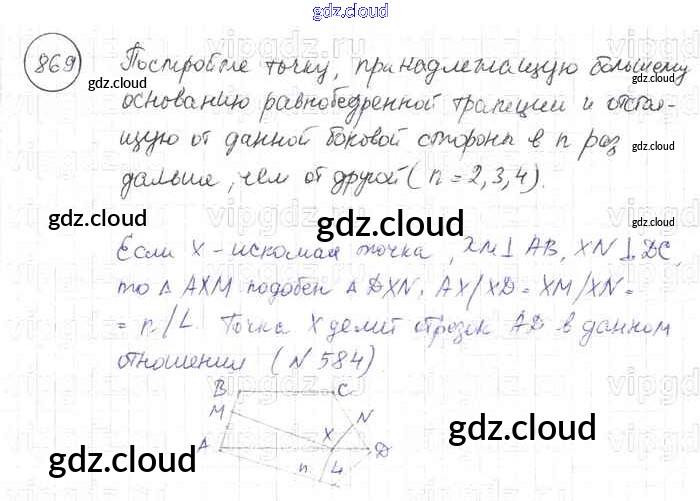 gdz.cloud
869
Постройте точку, принадлежащую большему
основанию равнобедренной трапеции и отстоя-
щую от данной боковой стороны в n раз
дальше, чем от другой (n = 2, 3, 4).
Если X - искомая точка, XM⊥AB, XN⊥DC,
то △ AXM подобен △ DXN, AX/XD = XM/XN =
= n/L. Точка X делит отрезок AD в данном
отношении (N 584)
B C
M N
A X D
n L
gdz.cloud
gdz.cloud
gdz.cloud
gdz.cloud
gdz.cloud
gdz.cloud
gdz.cloud
gdz.cloud
gdz.cloud
gdz.cloud